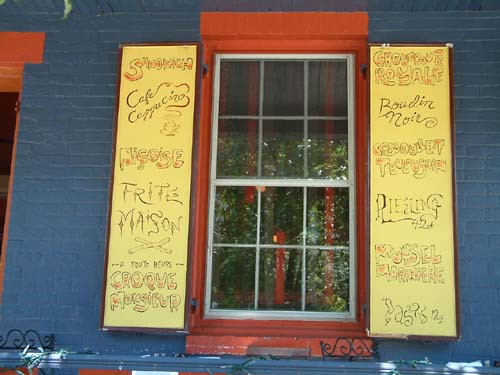 SANDWICH
Cafe
Cappucino
NIÇOISE
FRITE
MAISON
A TOUTE HEURE
CROQUE
MONSIEUR
CHOUCROUTE
ROYALE
Boudin
Noir
CASSOULET
TOULOUSAIN
RIESLING
MUSSEL
MARINIERE
Pastis